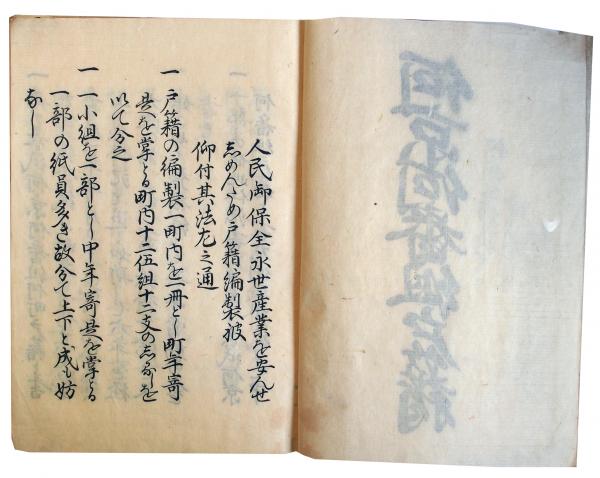 人民御保全永世産業を安んせ
しめんため戸籍編製被
仰付其法左之通
一 戸籍の編製一町内を一冊とし町年寄
是を掌とる町内十二伍組十二支のしるしを
以て分之
一 一小組を一部とし中年寄是を掌とる
一部の紙員多き故分て上下と成も妨
なし